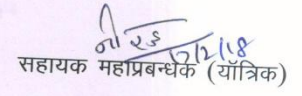 17/2/18
सहायक महाप्रबन्धक (यॉत्रिक)